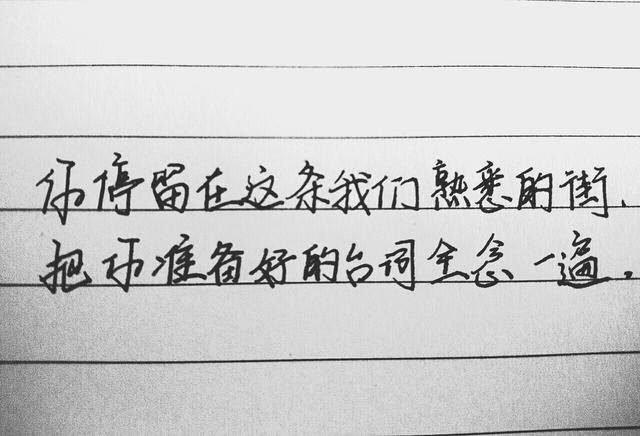 你停留在这条我们熟悉的街,
把你准备好的台词全念一遍。